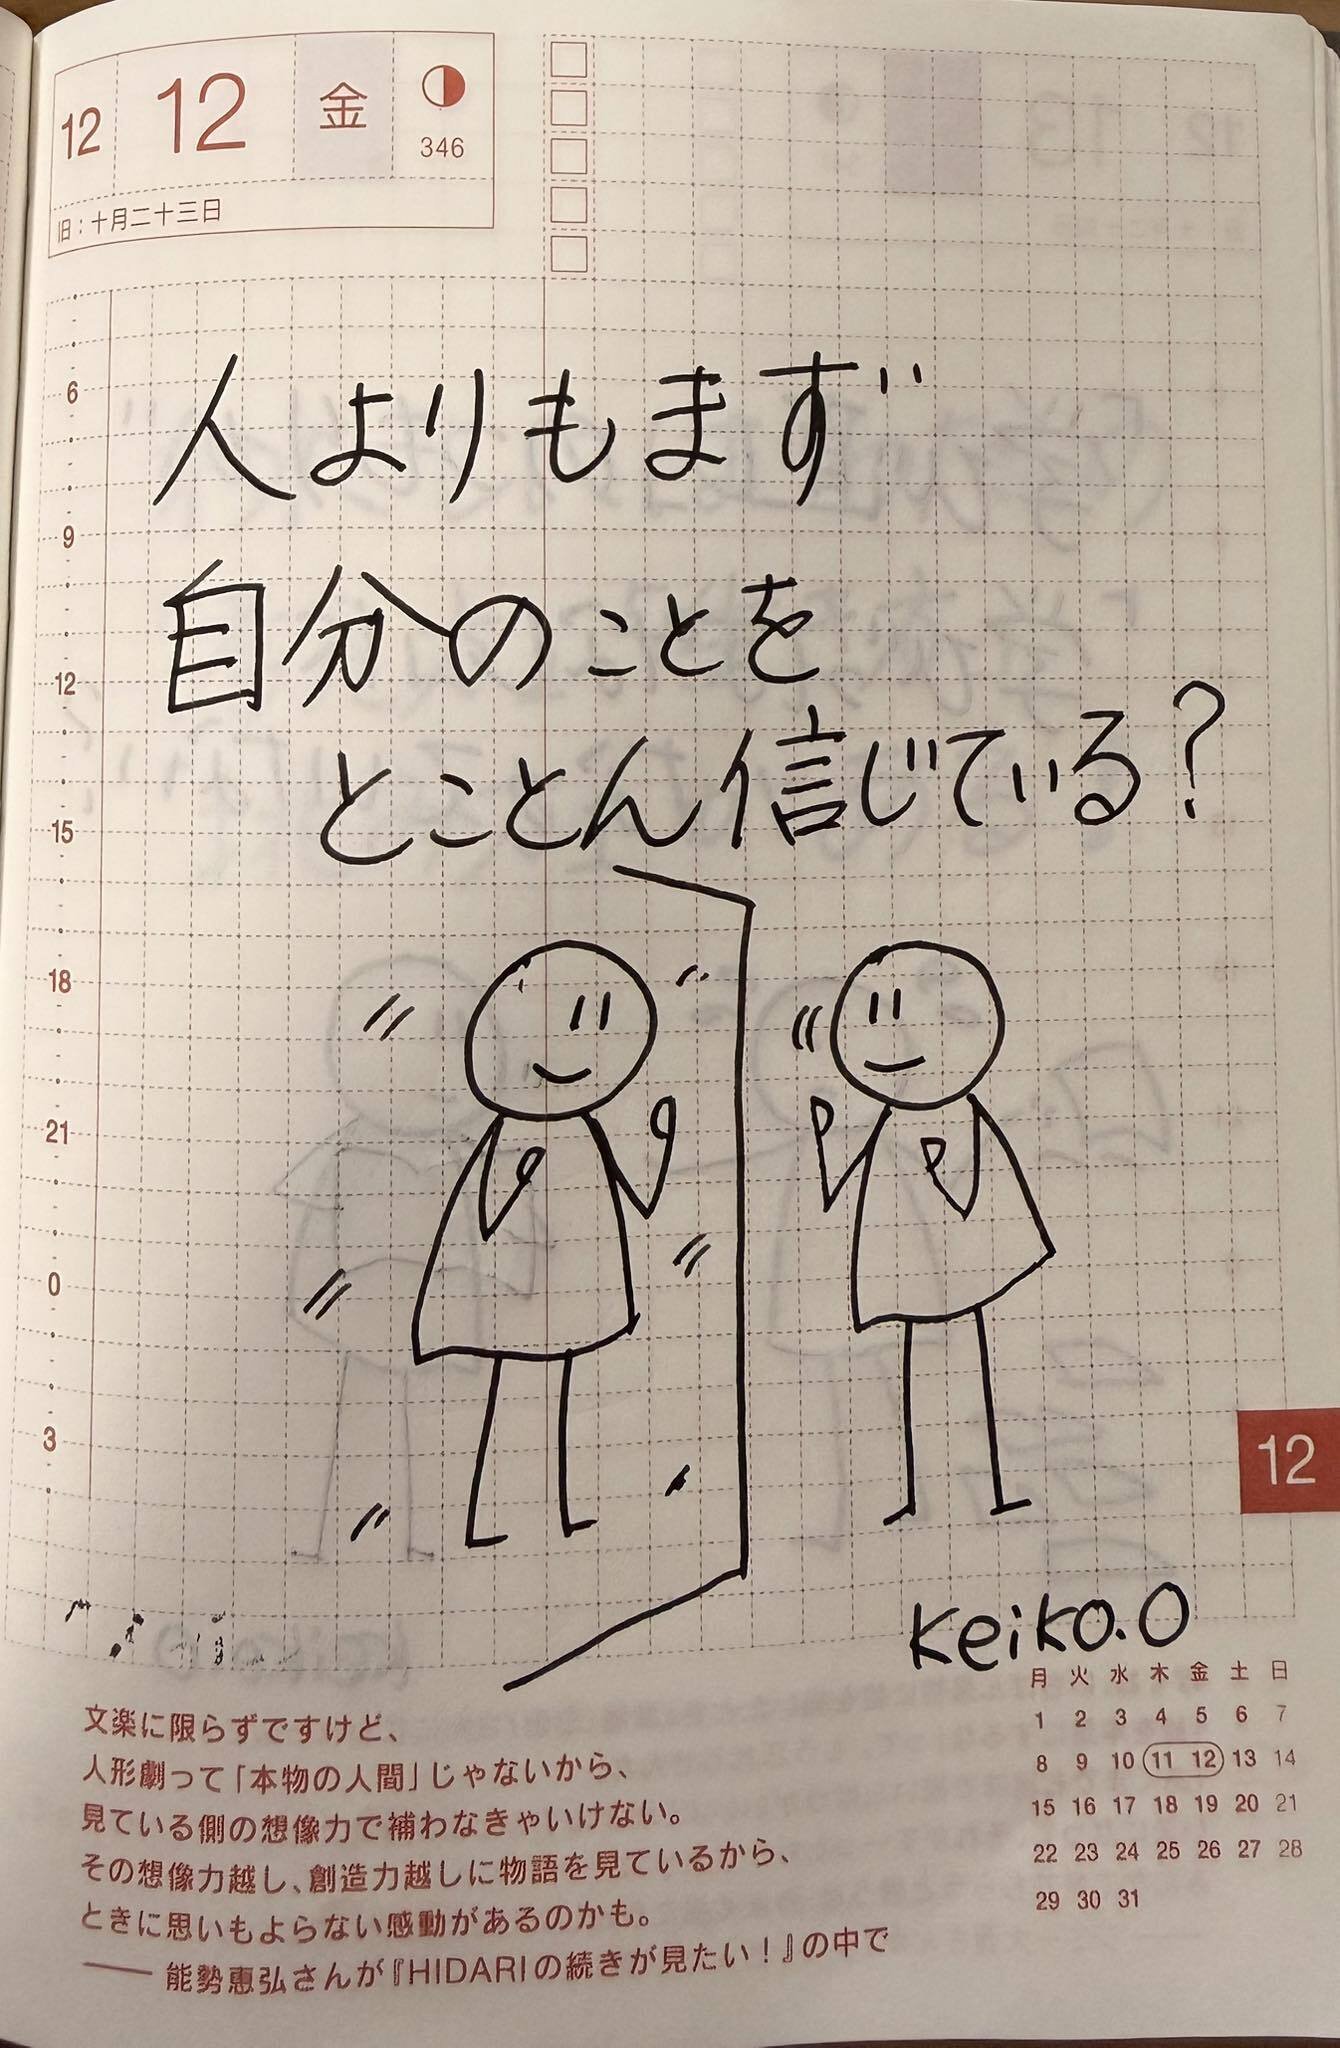 12 12 金 346
旧：十月二十三日
人よりもまず
自分のことを
とことん信じている？
6
9
12
15
18
21
0
3
12
Keiko.O
文楽に限らずですけど、
人形劇って「本物の人間」じゃないから、
見ている側の想像力で補わなきゃいけない。
その想像力越し、創造力越しに物語を見ているから、
ときに思いもよらない感動があるのかも。
—— 能勢恵弘さんが『HIDARIの続きが見たい！』の中で
月 火 水 木 金 土 日
1 2 3 4 5 6 7
8 9 10 11 12 13 14
15 16 17 18 19 20 21
22 23 24 25 26 27 28
29 30 31